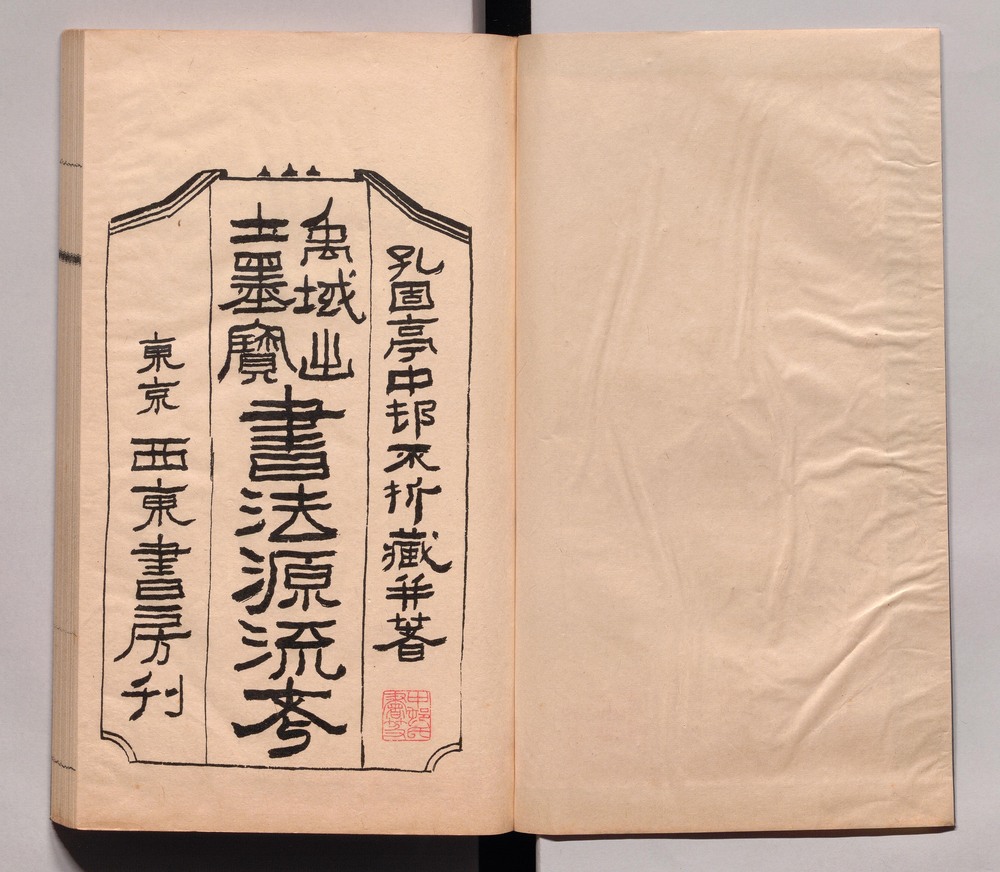 孔固亭中邨不折藏并著
禹域出土墨寳
書法源流考
東京 西東書房刊